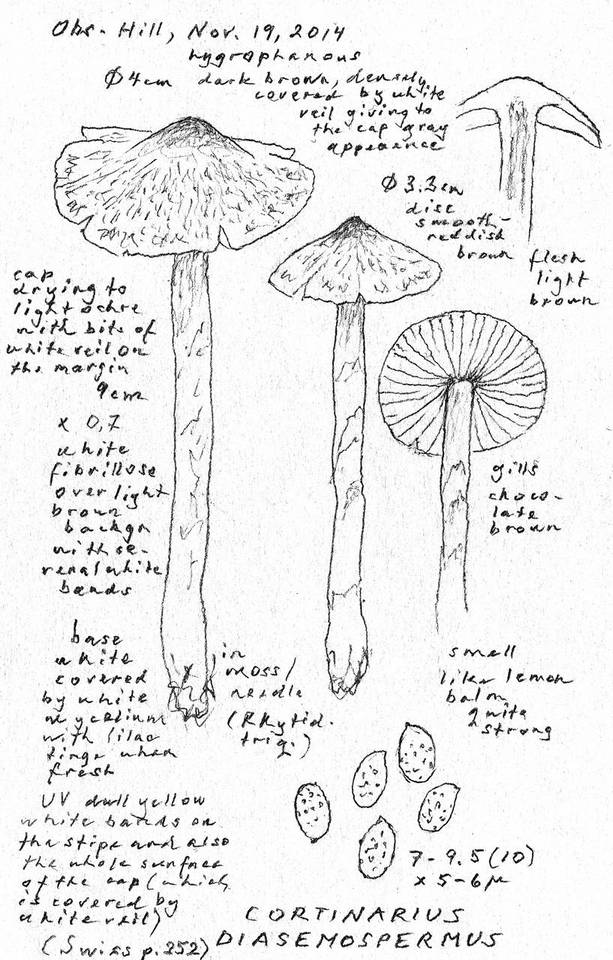 Obs. Hill, Nov. 19, 2014
hygrophanous
Ø 4cm dark brown, densely
covered by white
veil giving to
the cap gray
appearence
Ø 3.3cm
disc
smooth-
reddish
brown
flesh
light
brown
cap
drying to
light ochre
with bits of
white veil on
the margin
9cm
x 0,7
white
fibrillose
over light
brown
backgr
with se-
veral white
bands
gills
choco-
late
brown
base
white
covered
by white
mycelium
with lilac
tinge when
fresh
in
moss/
needle
(Rhytid.
triq.)
smell
like lemon
balm
quite
strong
UV dull yellow
white bands on
the stipe and also
the whole surface
of the cap (which
is covered by
white veil)
(Swiss p. 252)
7-9.5(10)
x 5-6µ
CORTINARIUS
DIASEMOSPERMUS